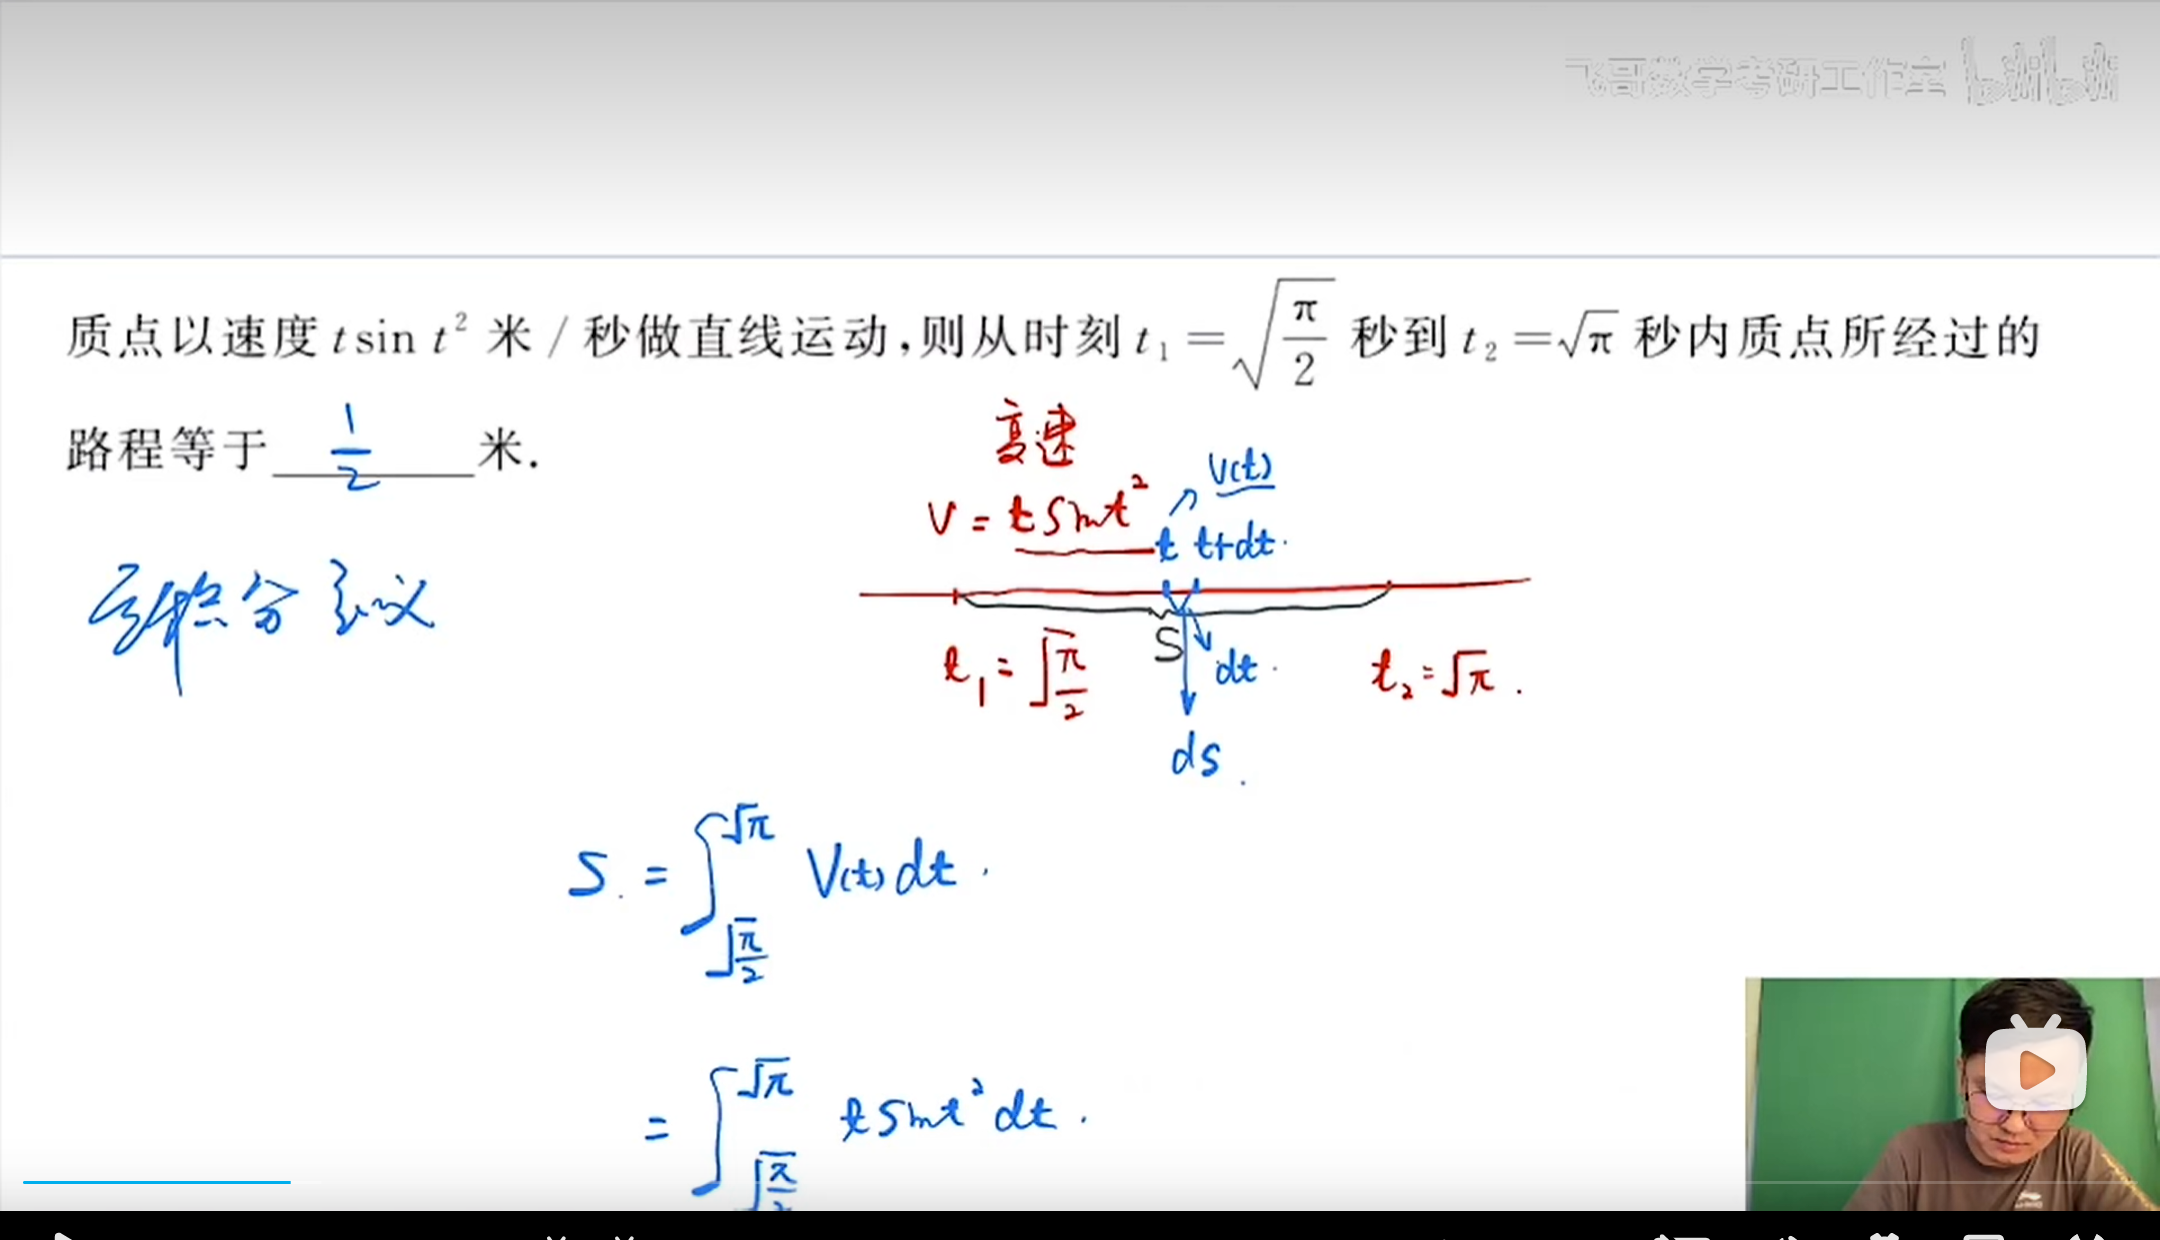 飞哥数学考研工作室 bilibili
质点以速度 t sin t² 米/秒做直线运动,则从时刻 t₁ = √(π/2) 秒到 t₂ = √π 秒内质点所经过的
路程等于 1/2 米.
变速
V = t sin t²
V(t)
t t+dt.
定积分定义
S
t₁ = √(π/2)
dt.
t₂ = √π.
ds.
S. = ∫_{√(π/2)}^{√π} V(t) dt.
= ∫_{√(π/2)}^{√π} t sin t² dt.